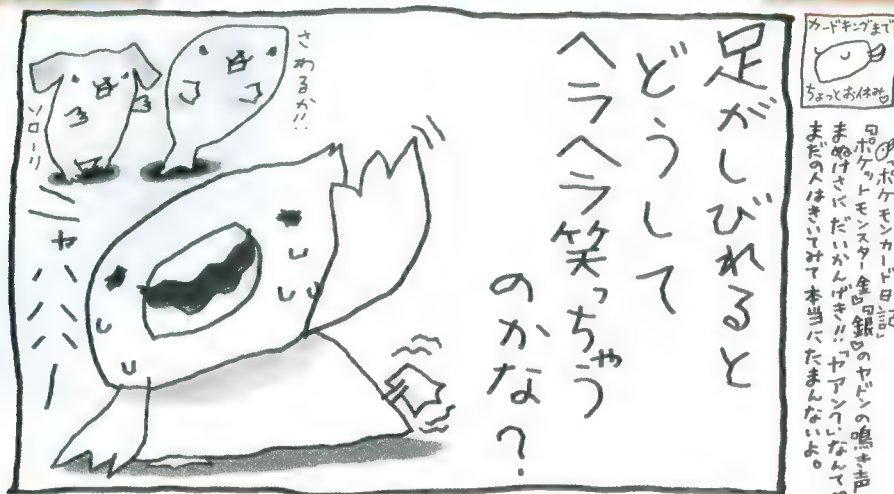 カードキングまで
ちょっとお休み♡
「ポケモンカード日記」
『ポケットモンスター金♡』『銀♡』のヤドンの鳴き声
まぬけさにだいかんげき!!「ヤアン?」なんて
まだの人はきいてみて本当にたまんないよ。
足がしびれると
どうして
ヘラヘラ笑っちゃう
のかな?
さわるか!!
ソローリ
ヤハハハー